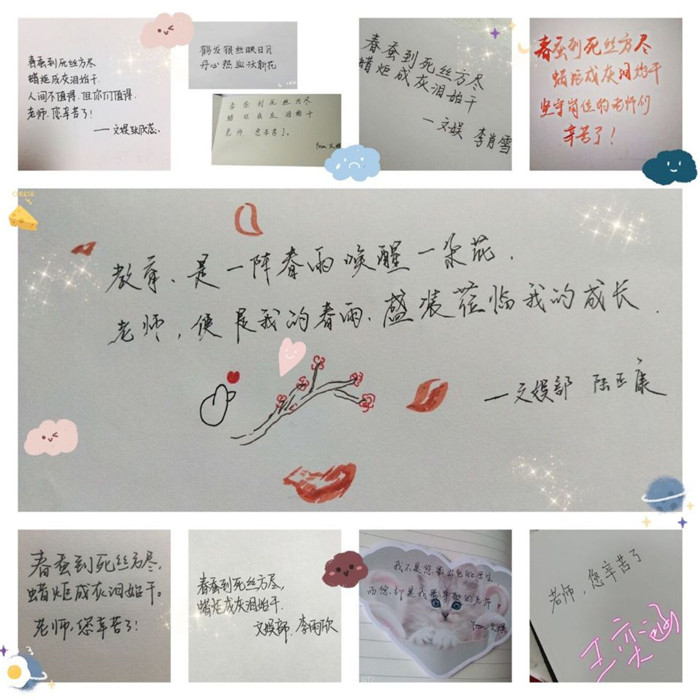 春蚕到死丝方尽
蜡炬成灰泪始干.
人间不值得,但你们值得.
老师,您辛苦了!
——文娱张欣蕊.
鹤发银丝映日月
丹心热血沃新花
春蚕到死丝方尽
蜡炬成灰泪始干
老师 您辛苦了.
from 文娱
春蚕到死丝方尽
蜡炬成灰泪始干
——文娱 李肖雪
春蚕到死丝方尽
蜡炬成灰泪始干
坚守岗位的老师们
辛苦了!
CHEESE
教育,是一阵春雨唤醒一朵花.
老师,便是我的春雨,盛装莅临我的成长.
——文娱部 陆正康
春蚕到死丝方尽,
蜡炬成灰泪始干。
老师,您辛苦了!
春蚕到死丝方尽,
蜡炬成灰泪始干.
文娱部 李雨欣
我不是您最出色的学生
而您却是我最尊敬的老师
from 文娱
老师,您辛苦了
王奕涵